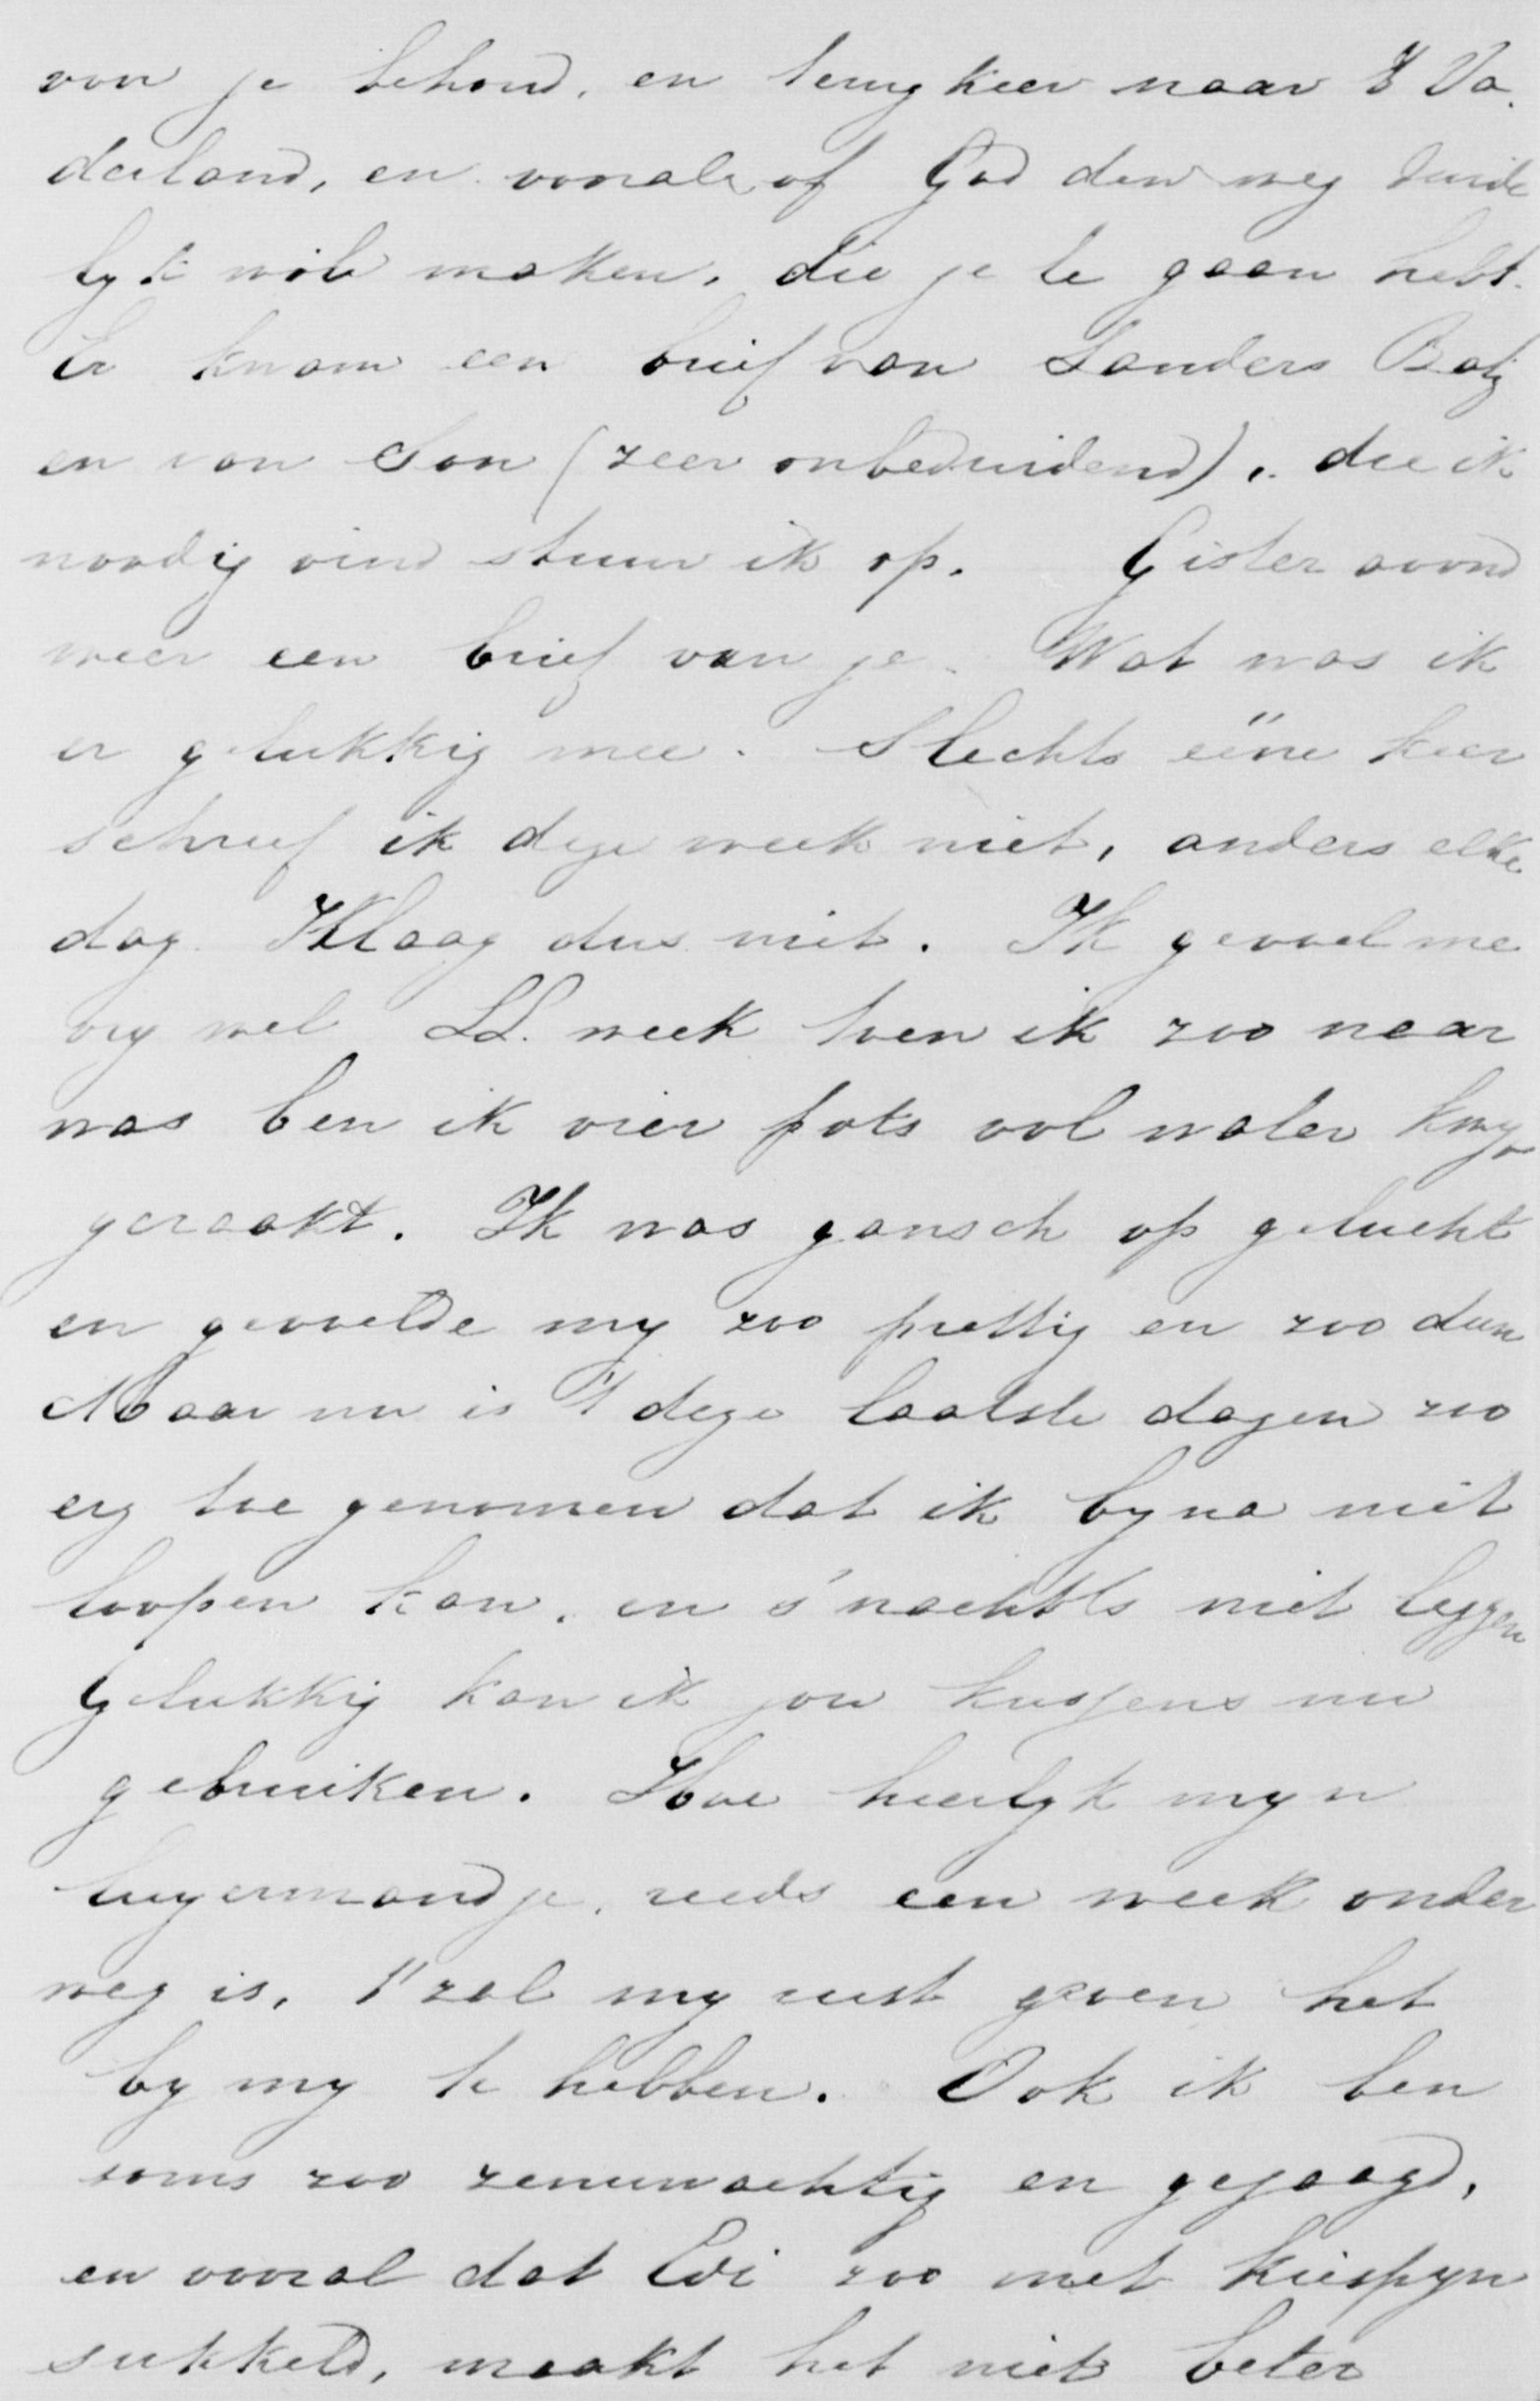 voor je behoud, en terugkeer naar 't Va-
derland, en vooral of God den weg duide
lyk wil maken, die je te gaan hebt.
Er kwam een brief van Sanders Batz
en van Son (zeer onbeduidend), die ik
noodig vind stuur ik op. Gister avond
weer een brief van je. Wat was ik
er gelukkig mee. Slechts eëne keer
schreef ik deze week niet, anders elke
dag. Klaag dus niet. Ik gevoel me
vry wel LL. week toen ik zoo naar
was ben ik vier pots vol water kwyt
geraakt. Ik was gansch op gelucht
en gevoelde my zoo prettig en zoo dun
Maar nu is 't deze laatste dagen zoo
erg toe genomen dat ik byna niet
loopen kan, en s'nachts niet leggen
Gelukkig kan ik jou kussens nu
gebruiken. Hoe heerlyk myn
luyermandje, reeds een week onder
weg is, 't zal my rust geven het
by my te hebben. Ook ik ben
soms zoo zenuwachtig en gejaagd,
en vooral dat Edi zoo met kiespyn
sukkeld, maakt het niet beter